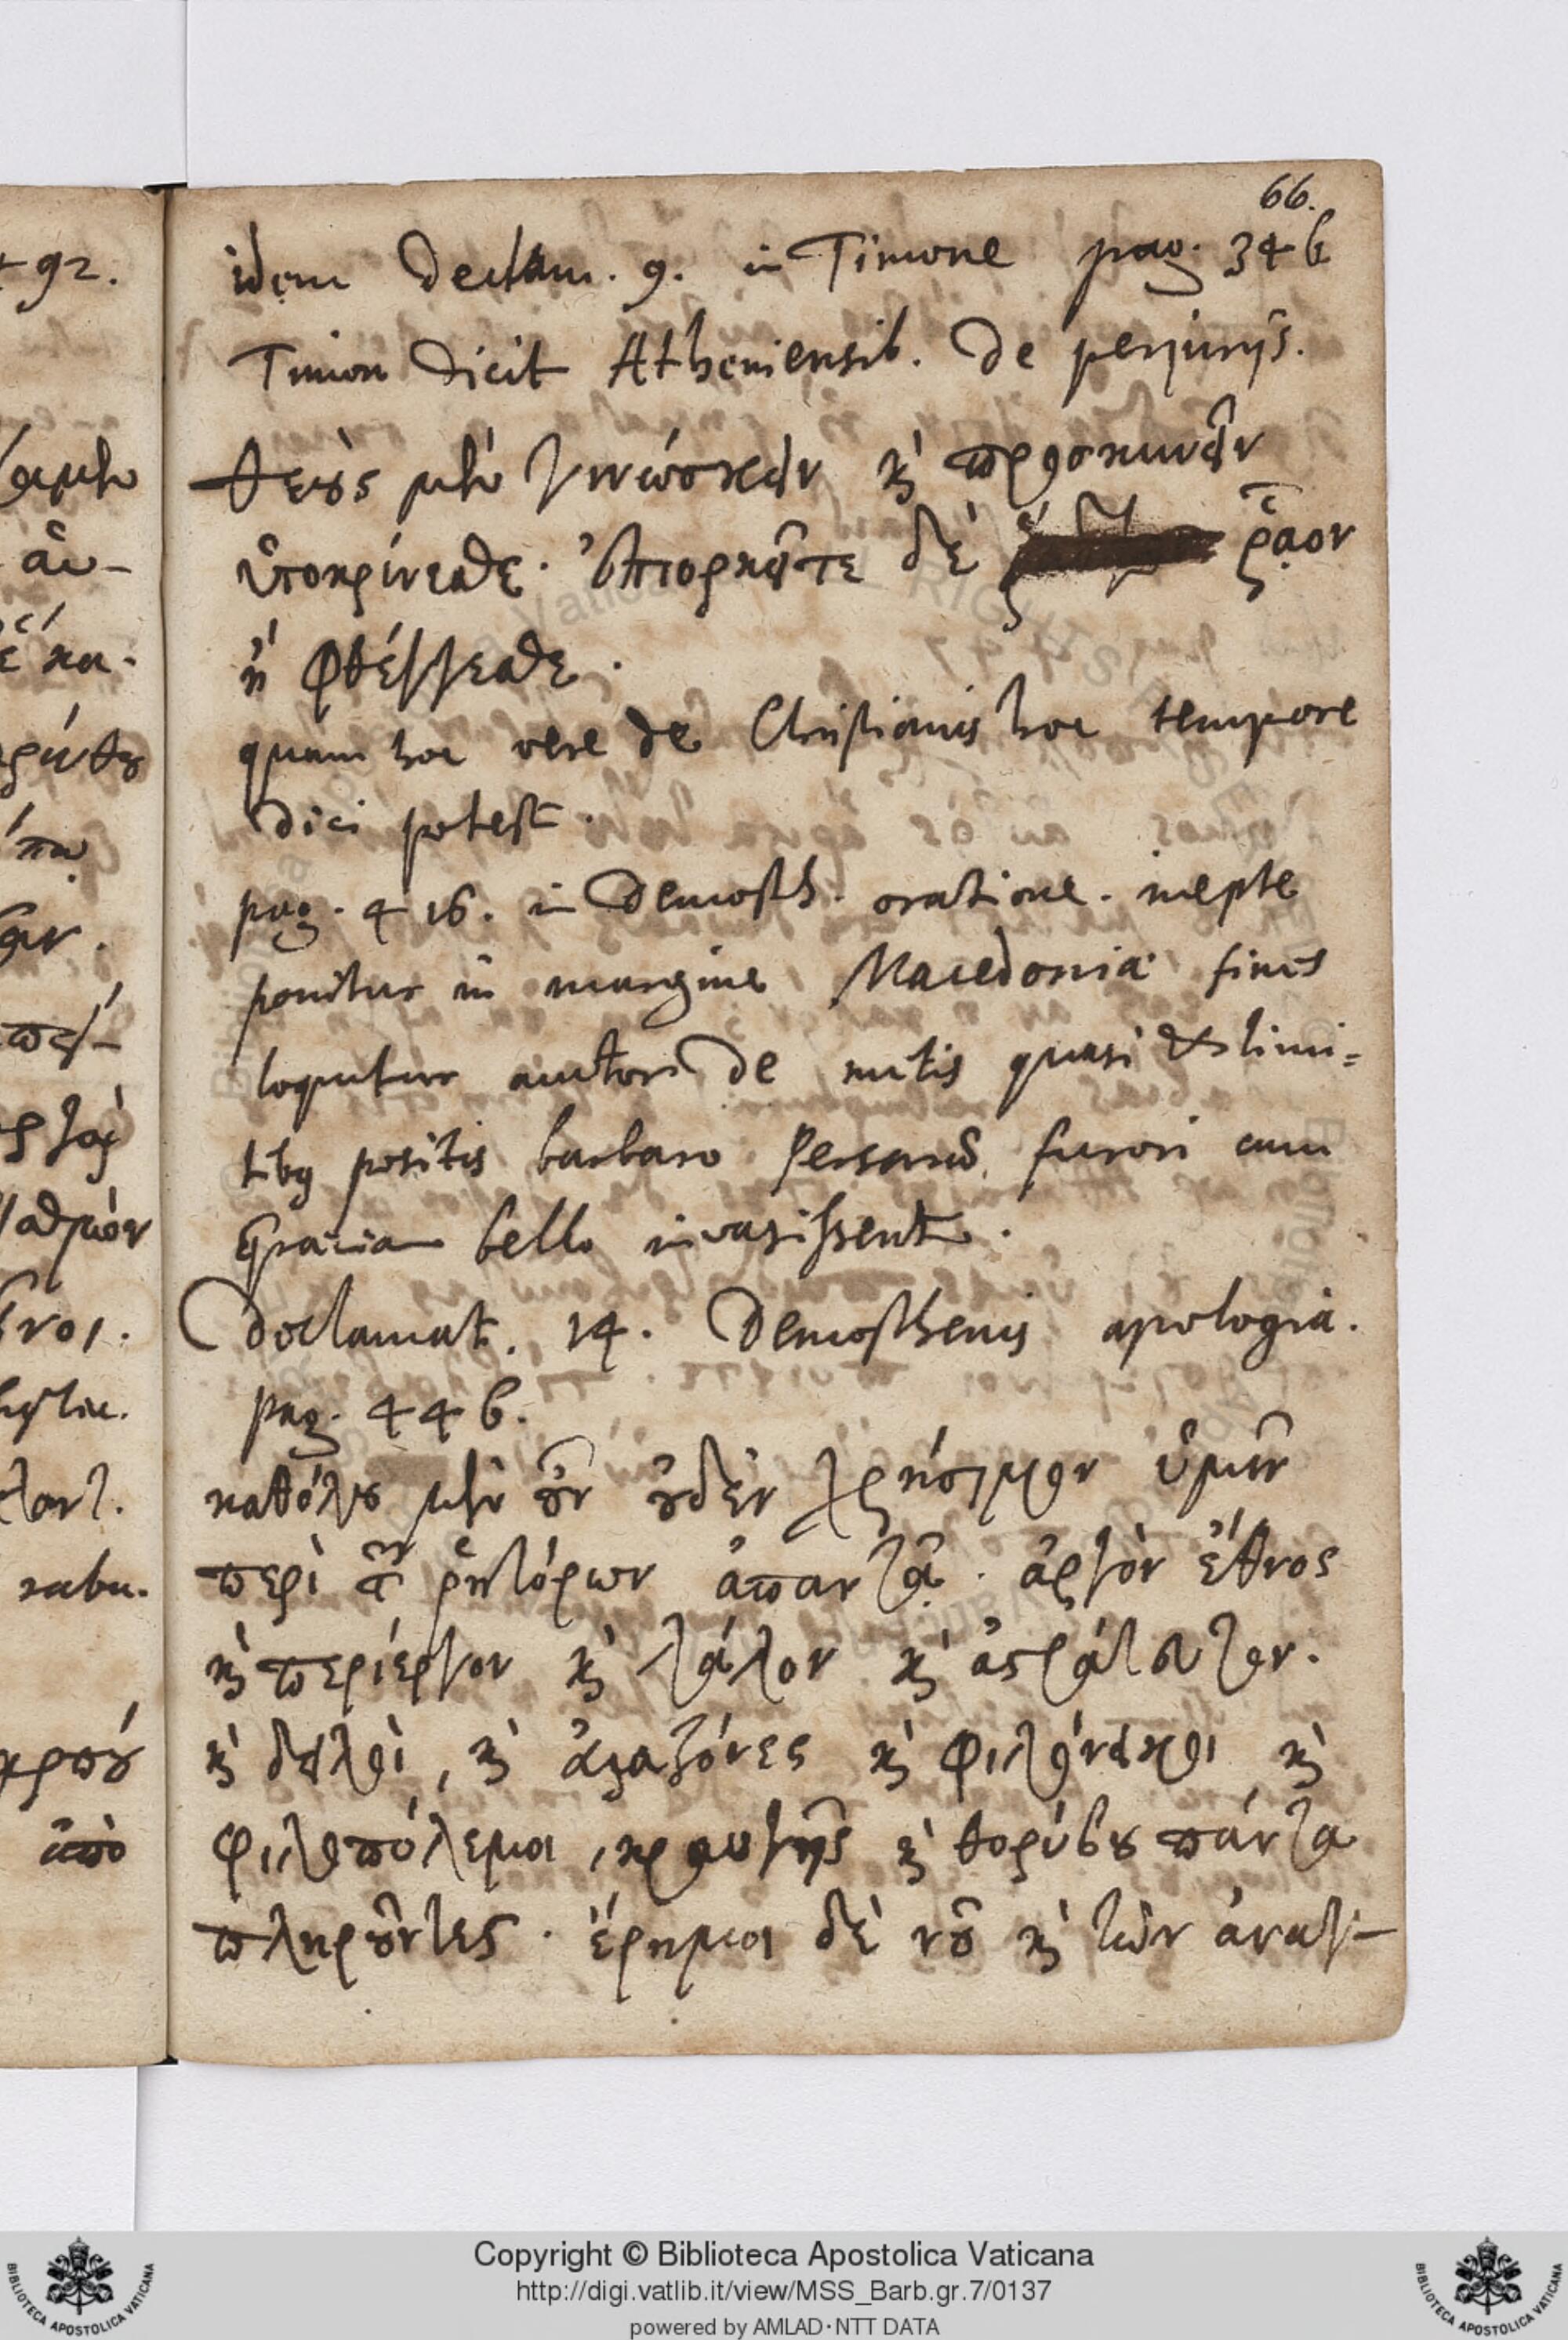 66.
idem Declam. 9. in Timone pag. 346
Timon dicit Atheniensib. de periurijs.
θεοὺς μὲν γινώσκειν κ̀ προσκυνεῖν
ὑποκρίνεσθε. ἐπιορκεῖτε δὲ ῥᾷον
ἢ φθέγγεσθε.
quam hoc vere de Christianis hoc tempore
dici potest.
pag. 416. in Demosth. oratione. inepte
ponitur in margine Macedonia fines
loquitur autor de initis quasi & limi=
tibq positis barbaro Persarũ furori cum
Graeciam bello invasissent.
Declamat. 14. Demosthenis apologia.
pag. 446.
καθόλου μὲν οὖν οὐδὲν χρήσιμον ὑμῖν
περὶ τῶν ῥητόρων ἁπαντᾷ. ἀργὸν ἔθνος
κ̀ περίεργον κ̀ λάλον κ̀ ἀστράτευτον.
κ̀ δειλοὶ, κ̀ ἀλαζόνες κ̀ φιλόνεικοι κ̀
φιλοπόλεμοι, κραυγῆς κ̀ θορύβου πάντα
πληροῦντες. ἔρημοι δὲ νοῦ κ̀ τῶν ἀναγ-
Copyright © Biblioteca Apostolica Vaticana
http://digi.vatlib.it/view/MSS_Barb.gr.7/0137
powered by AMLAD·NTT DATA
BIBLIOTECA APOSTOLICA VATICANA
BIBLIOTECA APOSTOLICA VATICANA